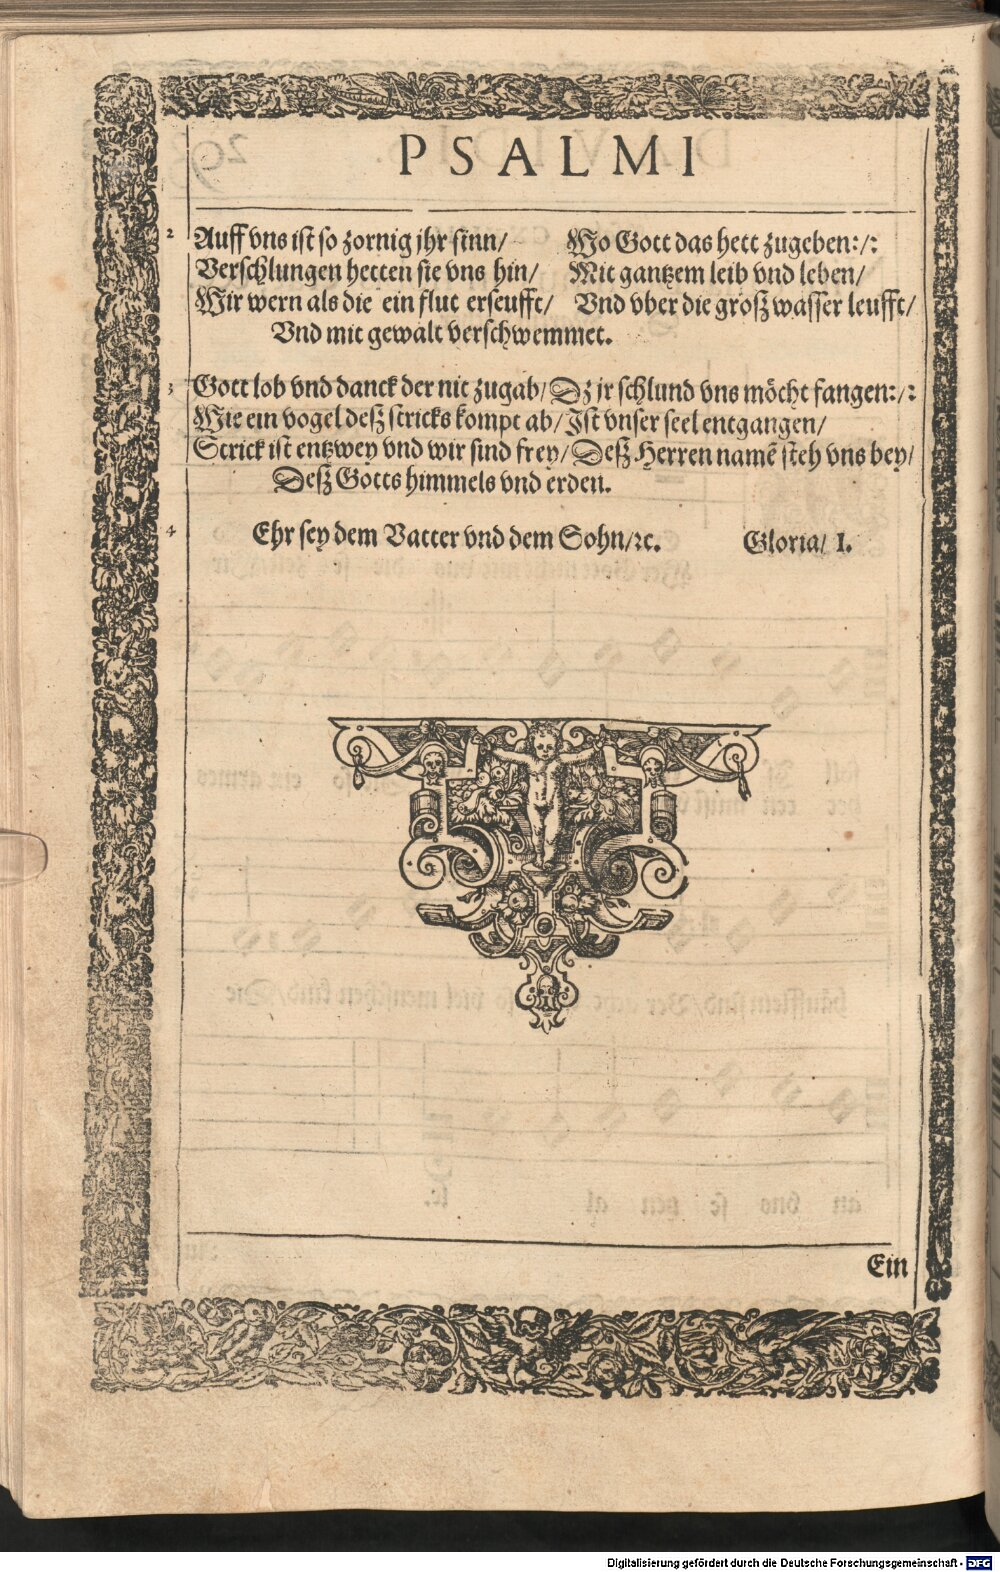 PSALMI
2 Auff vns ist so zornig jhr sinn/ Wo Gott das hett zugeben:/:
Verschlungen hetten sie vns hin/ Mit gantzem leib vnd leben/
Wir wern als die ein flut erseufft/ Vnd vber die groß wasser leufft/
Vnd mit gewalt verschwemmet.
3 Gott lob vnd danck der nit zugab/ Dz jr schlund vns möcht fangen:/:
Wie ein vogel deß stricks kompt ab/ Ist vnser seel entgangen/
Strick ist entzwey vnd wir sind frey/ Deß Herren namē steh vns bey/
Deß Gotts himmels vnd erden.
4 Ehr sey dem Vatter vnd dem Sohn/ꝛc. Gloria/ I.
Ein
Digitalisierung gefördert durch die Deutsche Forschungsgemeinschaft - DFG